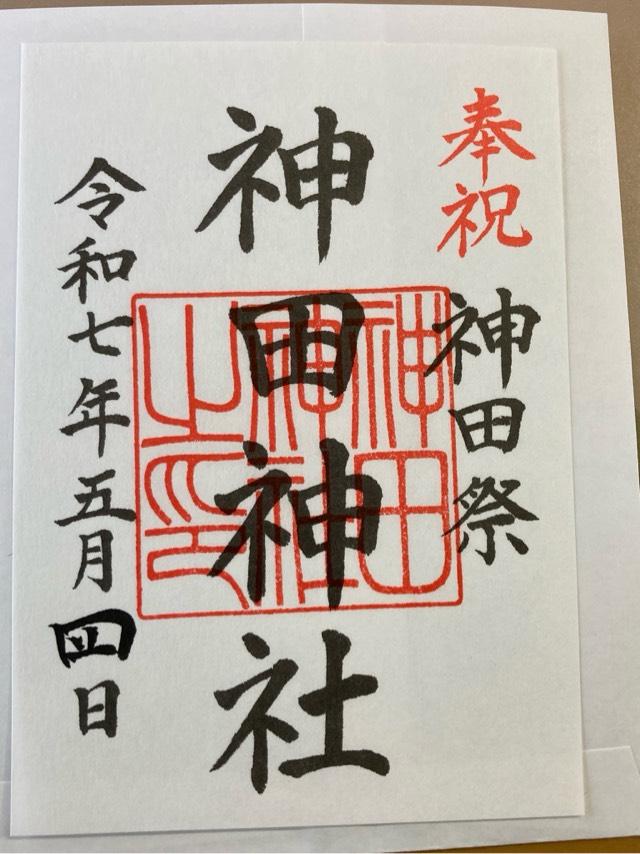 奉祝
神田祭
神田神社
神田神社之印
令和七年五月四日